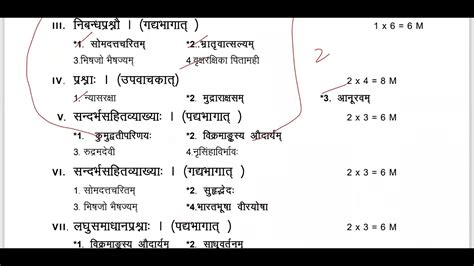 III. निबन्धप्रश्नौ । (गद्यभागात्) 1 x 6 = 6 M
*1. सोमदत्तचरितम् *2. भ्रातृवात्सल्यम्
3. भिषजो भैषज्यम् 4. वृक्षरक्षिका पितामही
IV. प्रश्नाः । (उपवाचकात्) 2 x 4 = 8 M
1. न्यासरक्षा *2. मुद्राराक्षसम् *3. आनूरवम्
V. सन्दर्भसहितव्याख्याः । (पद्यभागात्) 2 x 3 = 6 M
*1. कुमुद्वतीपरिणयः *2. विक्रमाङ्कस्य औदार्यम्
3. रुद्रमदेवी 4. नृसिंहाविर्भावः
VI. सन्दर्भसहितव्याख्याः । (गद्यभागात्) 2 x 3 = 6 M
1. सोमदत्तचरितम् *2. सुहृद्भेदः
3. भिषजो भैषज्यम् *4. भारतभूषा वीरयोषा
VII. लघुसमाधानप्रश्नाः । (पद्यभागात्) 2 x 3 = 6 M
*1. विक्रमाङ्कस्य औदार्यम् *2. साधुवर्तनम्
2